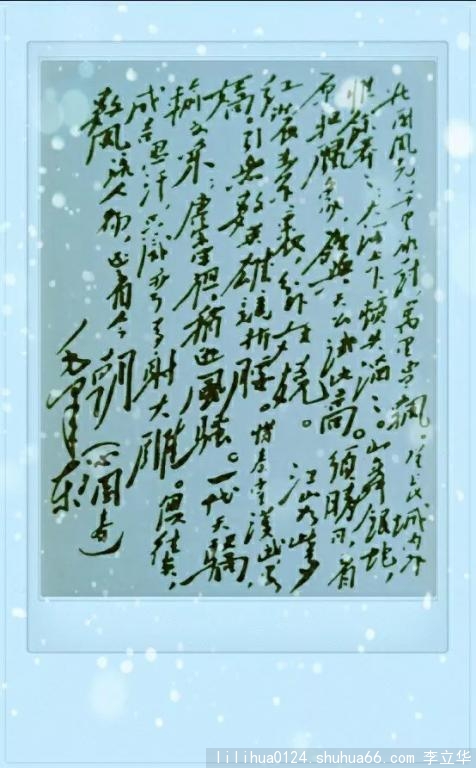 北国风光，千里冰封，万里雪飘。望长城内外，
惟余莽莽；大河上下，顿失滔滔。山舞银蛇，
原驰腊象，欲与天公试比高。须晴日，看
红装素裹，分外妖娆。江山如此多
娇，引无数英雄竞折腰。惜秦皇汉武，略
输文采；唐宗宋祖，稍逊风骚。一代天骄，
成吉思汗，只识弯弓射大雕。俱往矣，
数风流人物，还看今朝。（沁园春）
毛泽东
lilihua0124.shuhua66.com 李立华